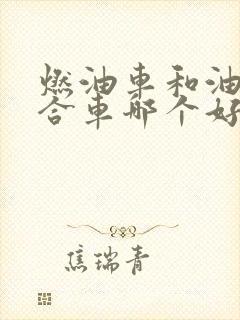 燃油车和油
合车哪个好
焦瑞青